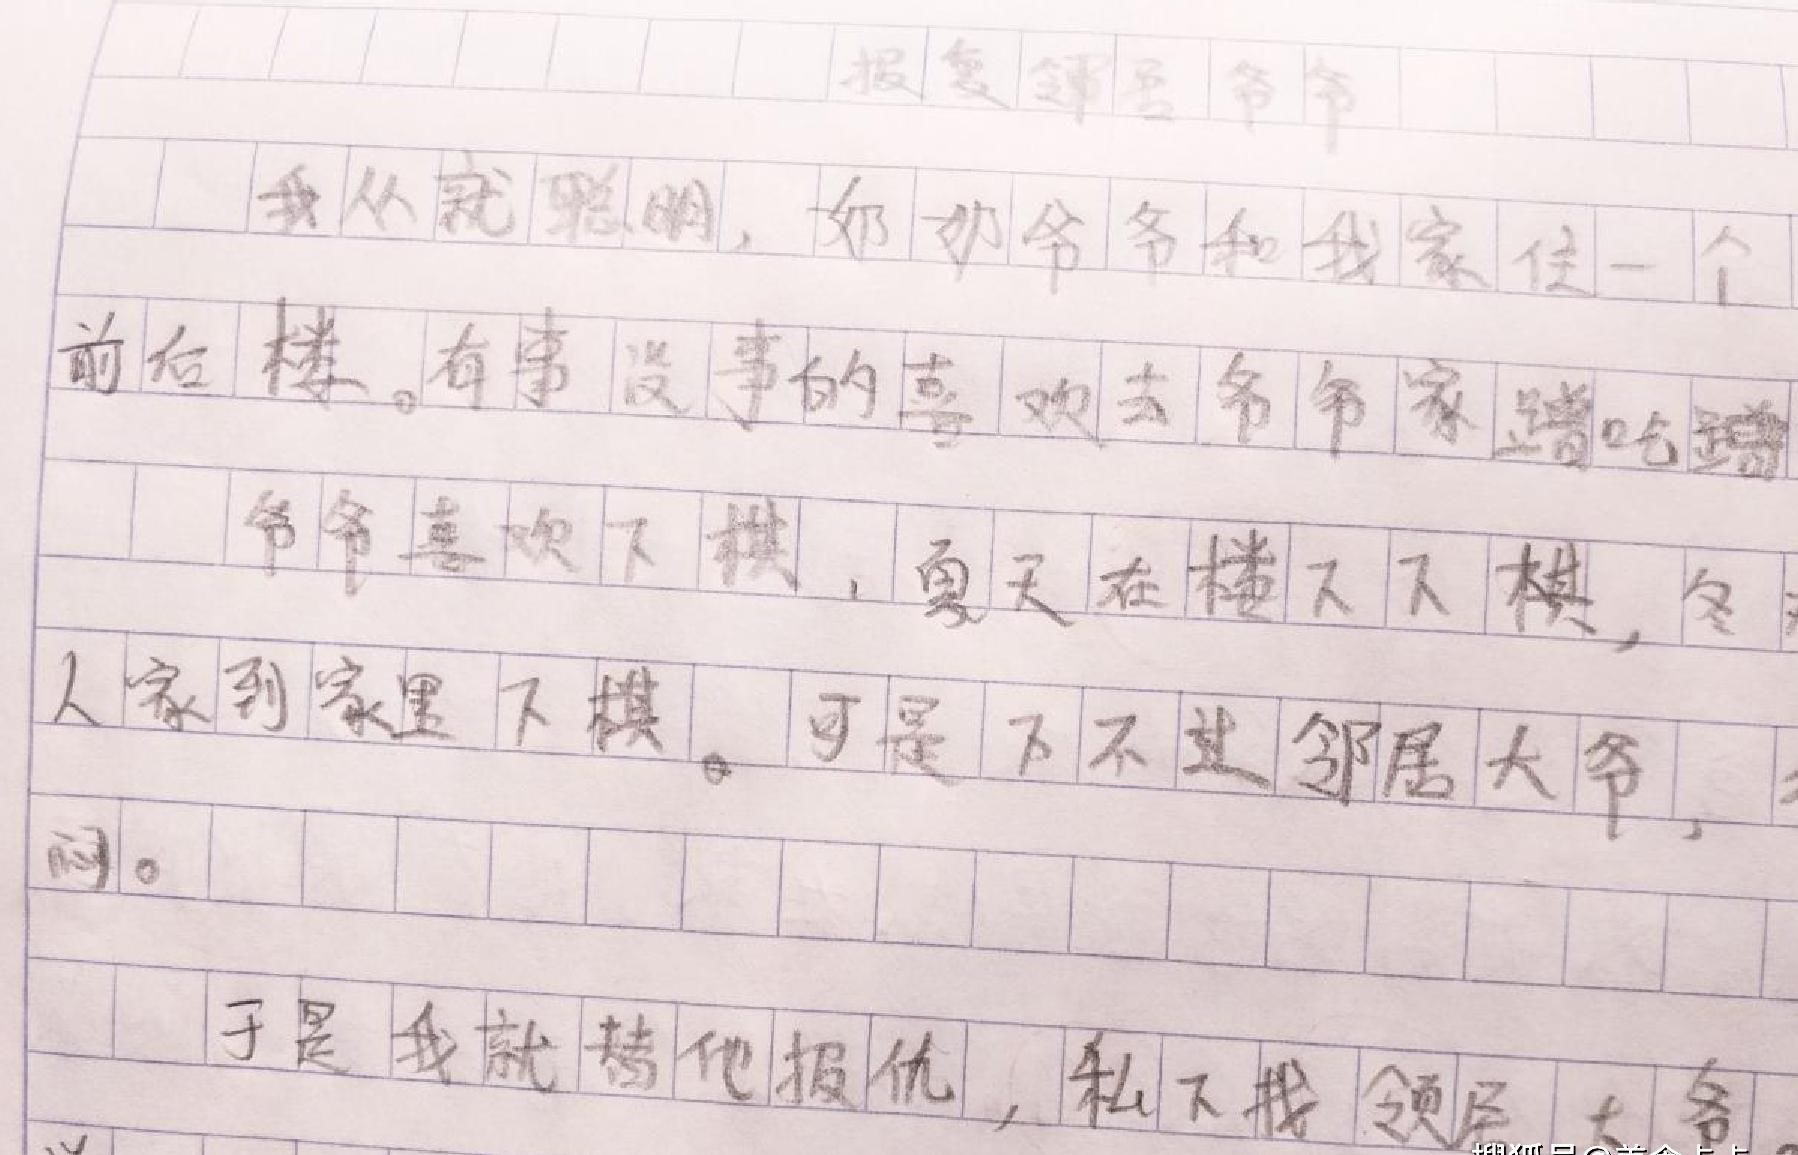 报复邻居爷爷
我从就聪明，奶奶爷爷和我家住一个
前后楼。有事没事的喜欢去爷爷家蹭吃蹭
爷爷喜欢下棋，夏天在楼下下棋，冬
人家到家里下棋。可是下不过邻居大爷，
闷。
于是我就替他报仇，私下找领居大爷
搜狐号@美食点点